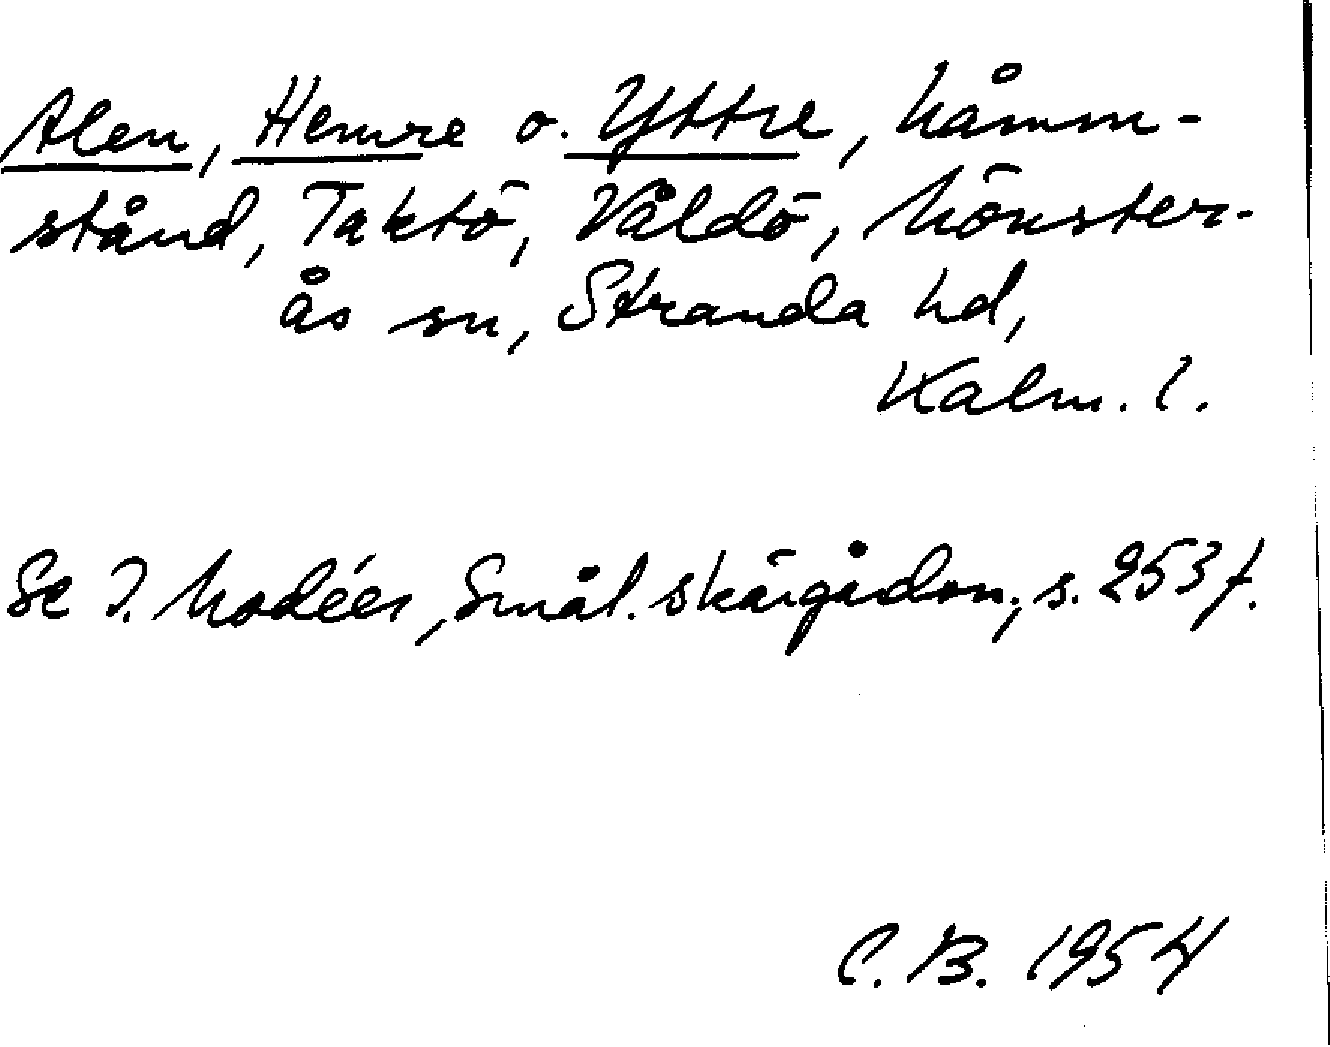 Alen, Hemre o. Yttre, Måmm-
stånd, Taktö, Våldö, Mönster-
ås sn, Stranda hd,
Kalm. l.
Se I. Modéer, Smål. skärgårdsn., s. 253 f.
C. B. 1954